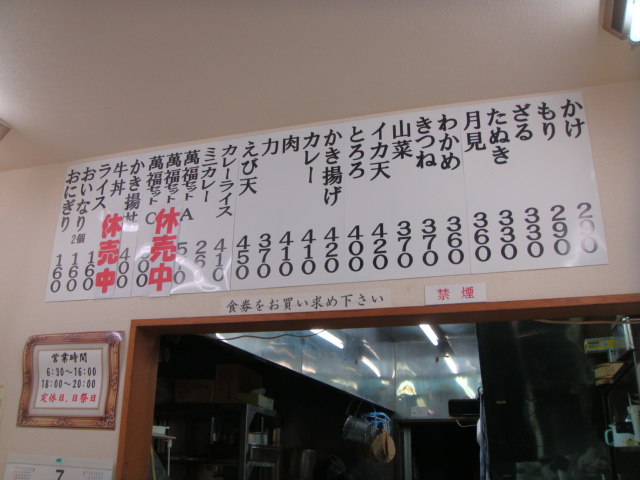 かけ 290
もり 290
ざる 330
たぬき 330
月見 360
わかめ 360
きつね 370
山菜 370
イカ天 420
とろろ 400
かき揚げ 420
カレー 410
肉 410
力 370
えび天 450
カレーライス 410
ミニカレー 260
萬福セットA
萬福セット
休売中
萬福セットC
かき揚丼 400
牛丼
休売中
ライス 160
おいなり2個 160
おにぎり 160
食券をお買い求め下さい
禁煙
営業時間
6:30～16:00
18:00～20:00
定休日、日祭日
7